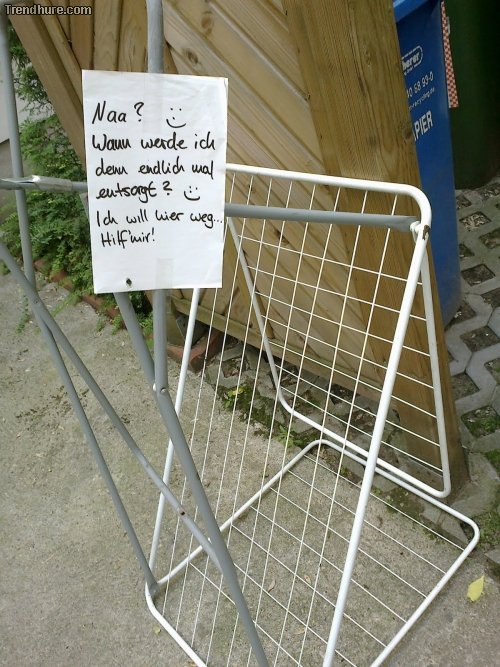 Trendhure.com
Naa? :)
Wann werde ich
denn endlich mal
entsorgt? :)
Ich will hier weg...
Hilf' mir!
PIER